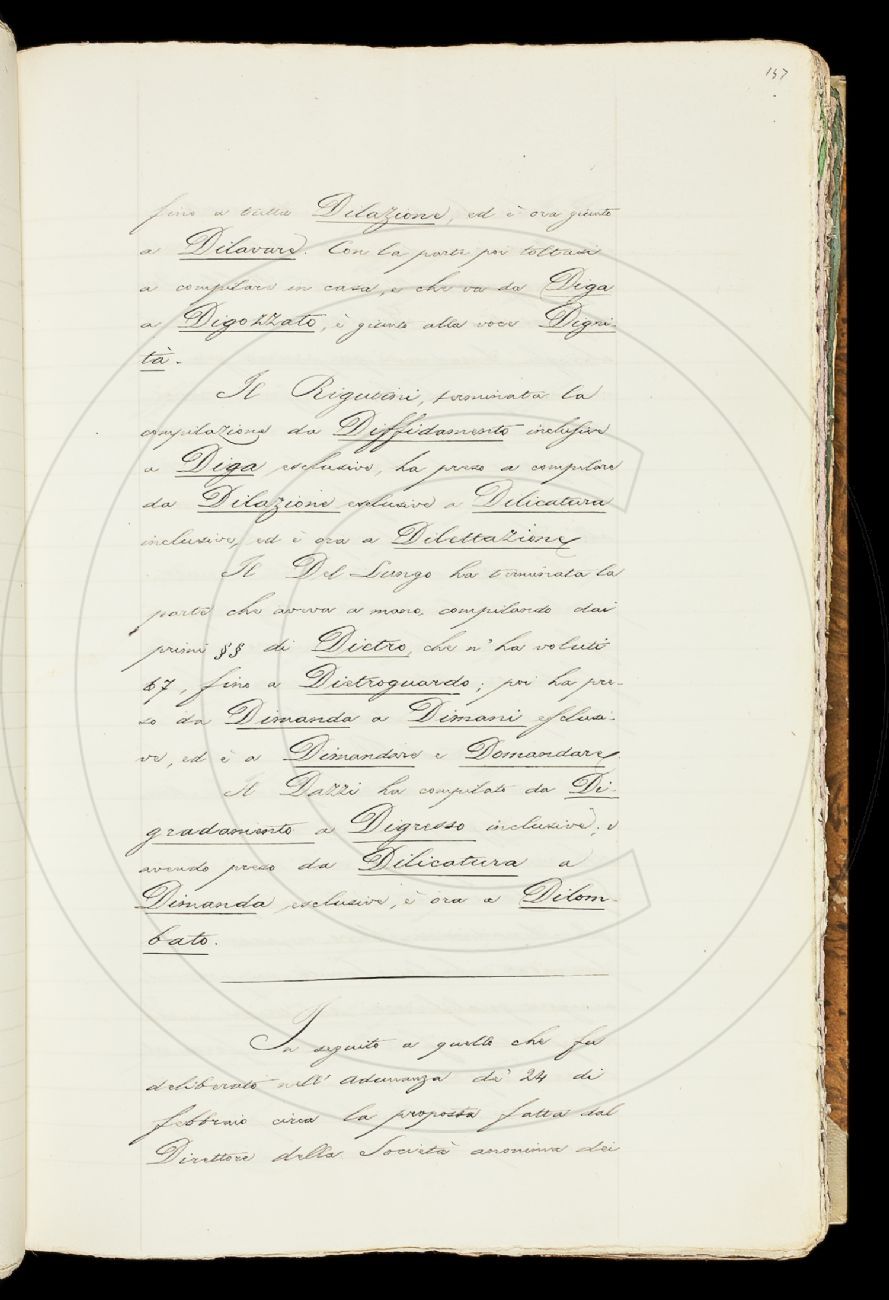 157
fino a tutta Dilazione, ed è ora giunto
a Dilavare. Con la parte poi toltasi
a compilare in casa, e che va da Diga
a Digozzato, è giunto alla voce Digni-
tà.
Il Rigutini, terminata la
compilazione da Diffidamento inclusive
a Diga esclusive, ha preso a compilare
da Dilazione esclusive a Dilicatura
inclusive, ed è ora a Dilettazione
Il Del Lungo ha terminata la
parte che aveva a mano, compilando dai
primi §§ di Dietro, che n'ha voluti
67, fino a Dietroguardo; poi ha pre-
so da Dimanda a Dimani esclusi-
ve, ed è a Dimandare e Domandare.
Il Dazzi ha compilato da Di-
gradamento a Digresso inclusive; e
avendo preso da Dilicatura a
Dimanda esclusive, è ora a Dilom-
bato.
In seguito a quello che fu
deliberato nell' Adunanza de' 24 di
febbraio circa la proposta fatta dal
Direttore della Società anonima dei